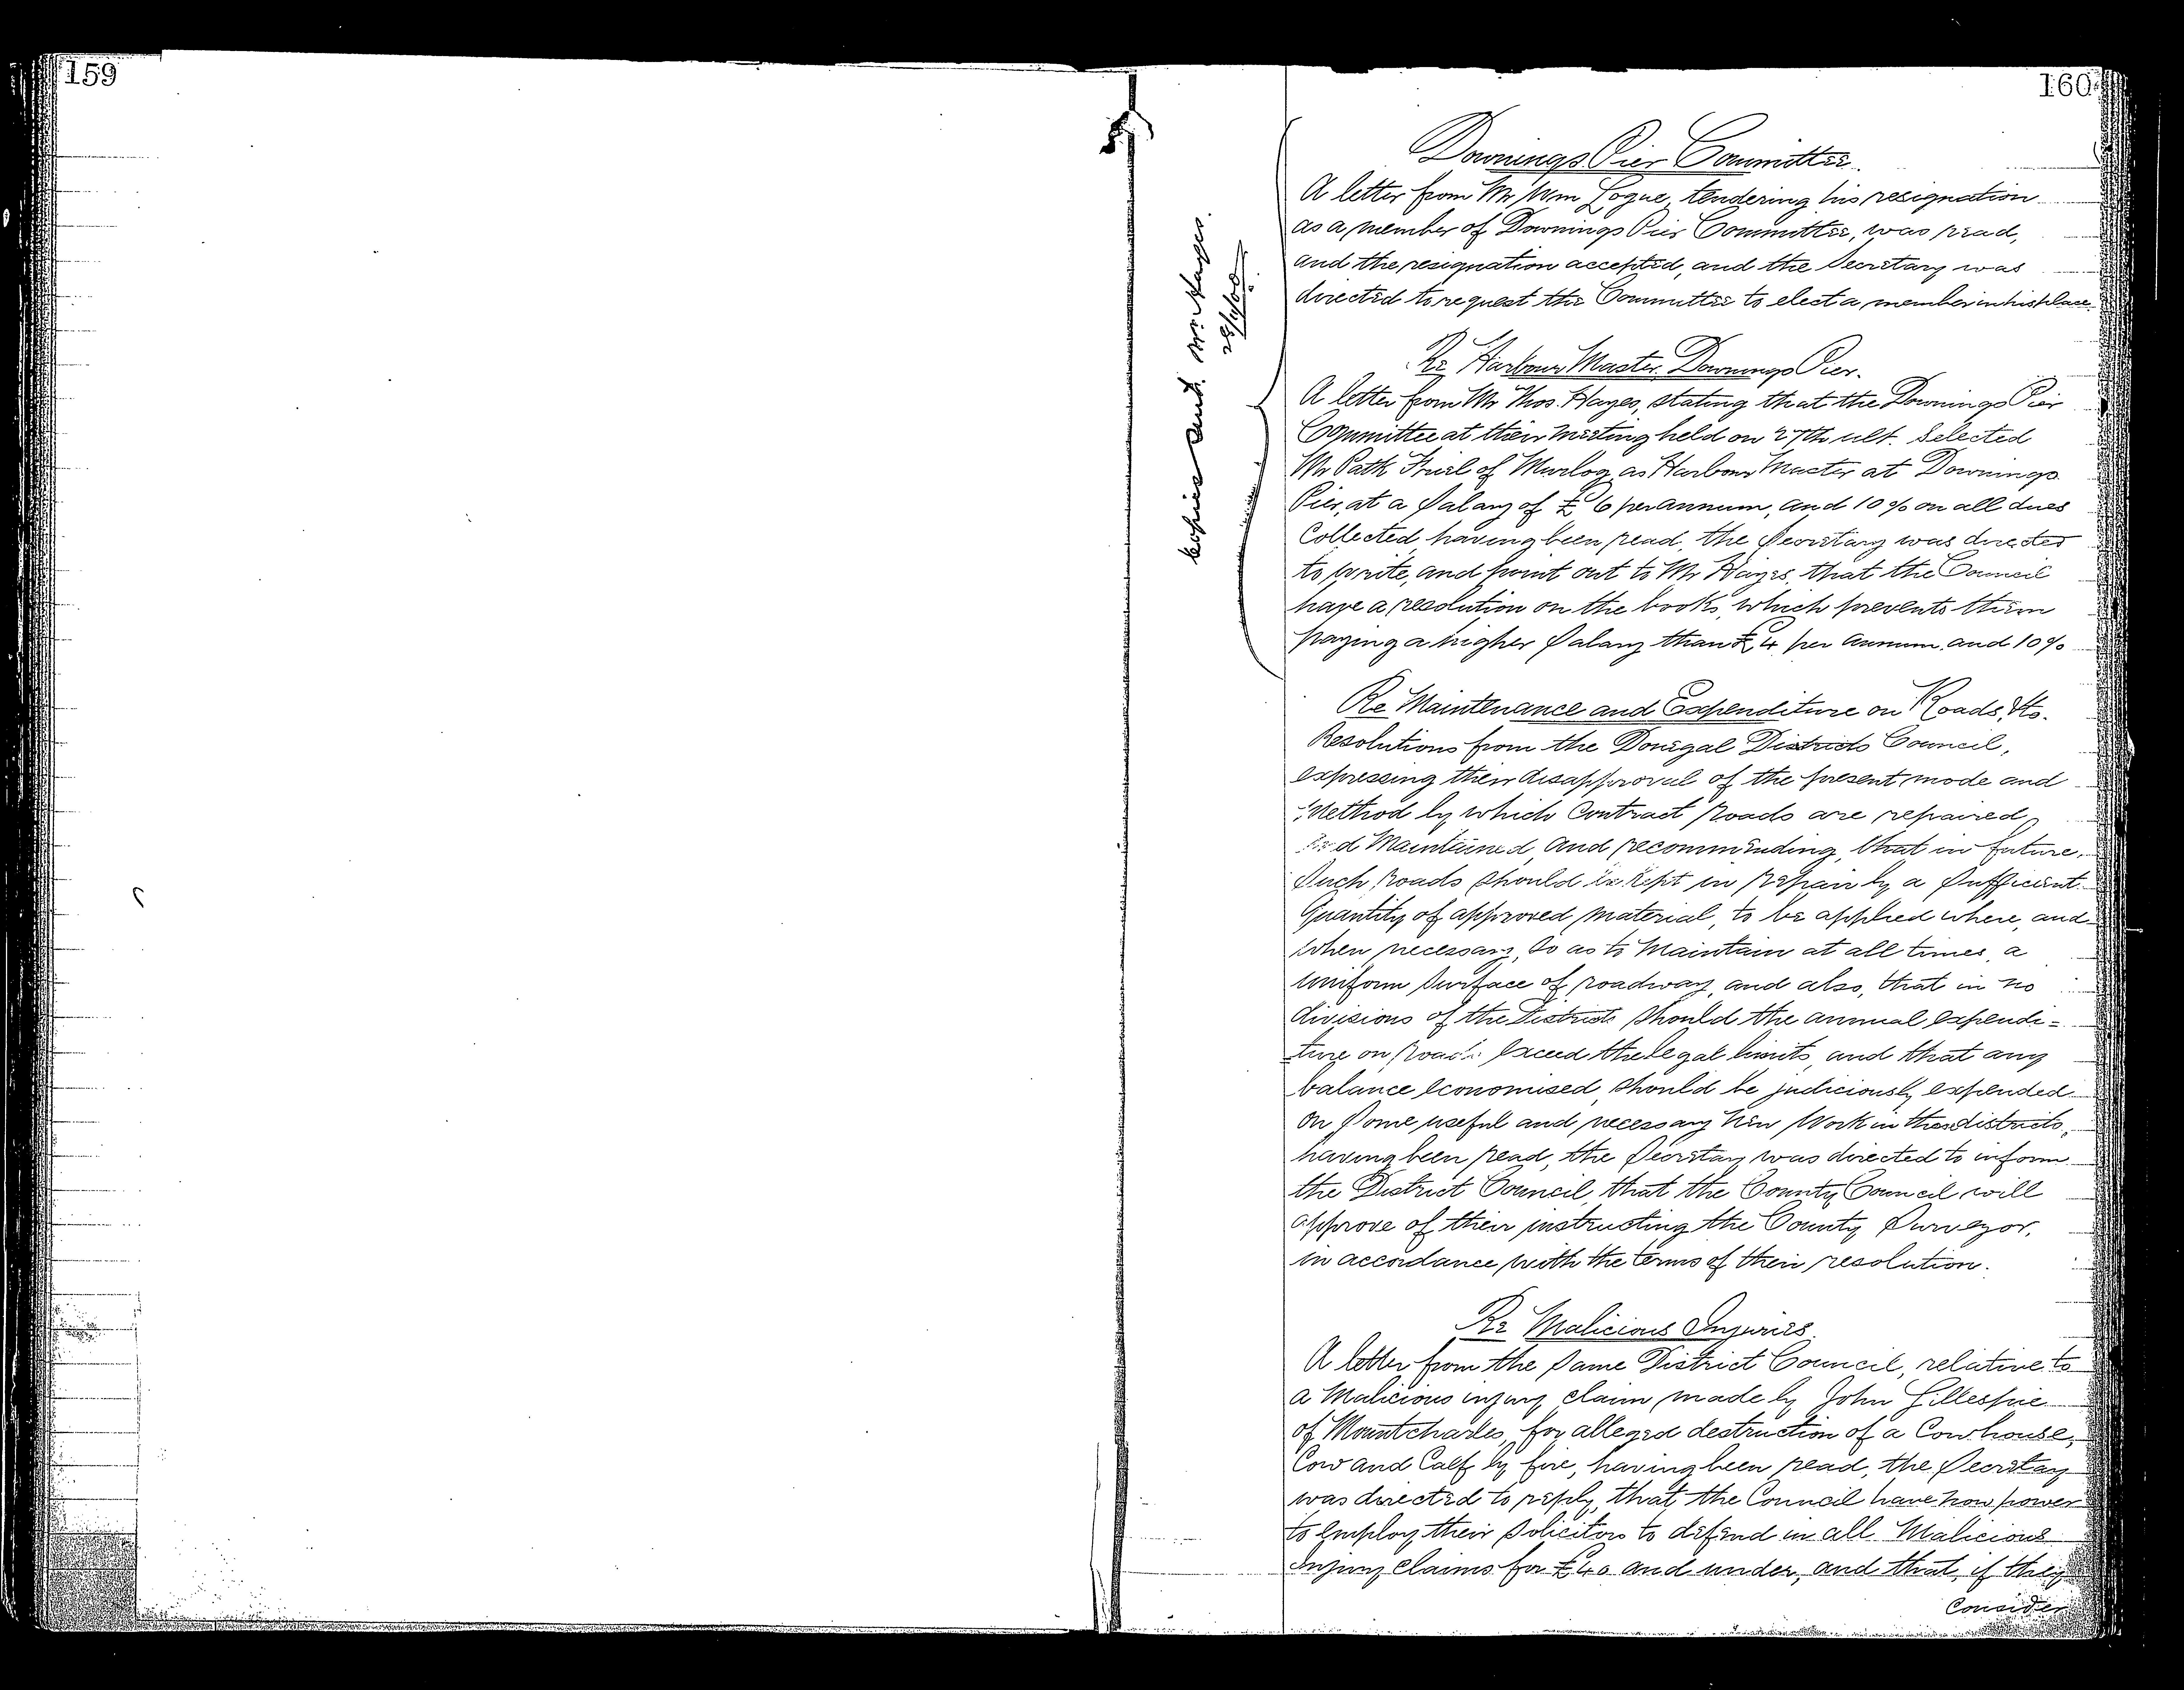 159
160
Downings Pier Committee.
A letter from Mr Wm Logue, tendering his resignation
as a member of Downings Pier Committee, was read,
and the resignation accepted, and the Secretary was
directed to request the Committee to elect a member in his place.
Copies sent Mr Hayes.
Re Harbour Master Downings Pier.
A letter from Mr Thos. Hayes, stating that the Downings Pier
Committee at their Meeting held on 27th ult. Selected
Mr Patk Friel of Murlog as Harbour Master at Downings
Pier, at a Salary of £6 per annum, and 10% on all dues
Collected, having been read, the Secretary was directed
to write, and point out to Mr Hayes, that the Council
have a resolution on the books, which prevents them
paying a higher Salary than £4 per annum and 10%
Re Maintenance and Expenditure on Roads, &c.
Resolutions from the Donegal Districts Council,
expressing their disapproval of the present mode and
Method by which Contract roads are repaired
and Maintained and recommending, that in future,
Such roads should be kept in repair by a Sufficient
Quantity of approved material, to be applied where, and
when necessary, So as to Maintain at all times, a
uniform Surface of roadway, and also, that in no
divisions of the Districts should the annual expendi=
ture on roads exceed the legal limits, and that any
balance economised, should be judiciously expended
on Some useful and necessary New Work in the districts,
having been read, the Secretary was directed to inform
the District Council, that the County Council will
approve of their instructing the County Surveyor,
in accordance with the terms of their resolution.
Re Malicious Injuries.
A letter from the Same District Council, relative to
a Malicious injury claim made by John Gillespie
of Mountcharles, for alleged destruction of a Cowhouse,
Cow and Calf by fire, having been read, the Secretary
was directed to reply, that the Council have now power
to employ their Solicitors to defend in all Malicious
Injury Claims for £40 and under, and that, if they
Consider